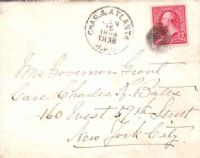 CHAR. & ATLANTA
R.P.O.
Mrs. Governor Grant
Care Charles L. Bates
160 West 59th Street
New York City